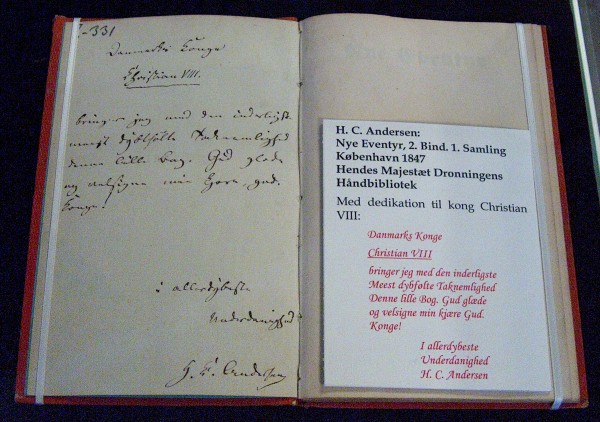 -331
Danmarks Konge
Christian VIII.
bringer jeg med den inderligste
meest dybtfølte Taknemlighed
denne lille Bog. Gud glæde
og velsigne min kjære, gud.
Konge!
i allerdybeste
Underdanighed
H. C. Andersen
H. C. Andersen:
Nye Eventyr, 2. Bind. 1. Samling
København 1847
Hendes Majestæt Dronningens
Håndbibliotek
Med dedikation til kong Christian
VIII:
Danmarks Konge
Christian VIII
bringer jeg med den inderligste
Meest dybfølte Taknemlighed
Denne lille Bog. Gud glæde
og velsigne min kjære Gud.
Konge!
I allerdybeste
Underdanighed
H. C. Andersen